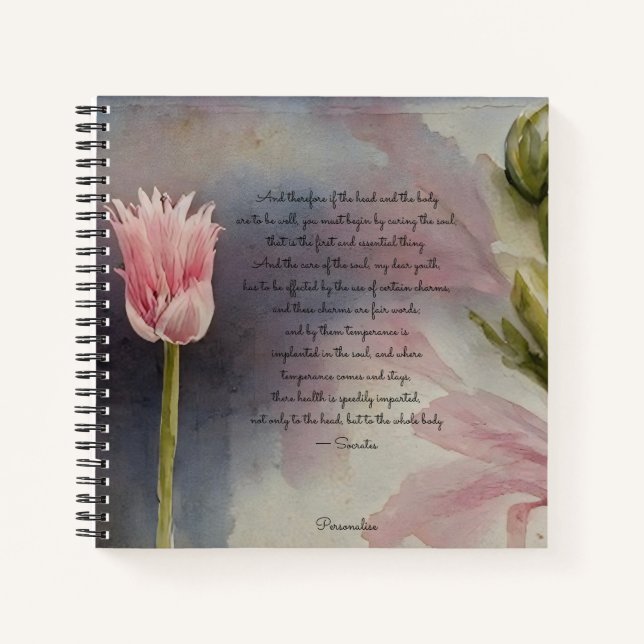 And therefore if the head and the body
are to be well, you must begin by curing the soul;
that is the first and essential thing.
And the care of the soul, my dear youth,
has to be affected by the use of certain charms,
and these charms are fair words;
and by them temperance is
implanted in the soul, and where
temperance comes and stays,
there health is speedily imparted,
not only to the head, but to the whole body
— Socrates
Personalise